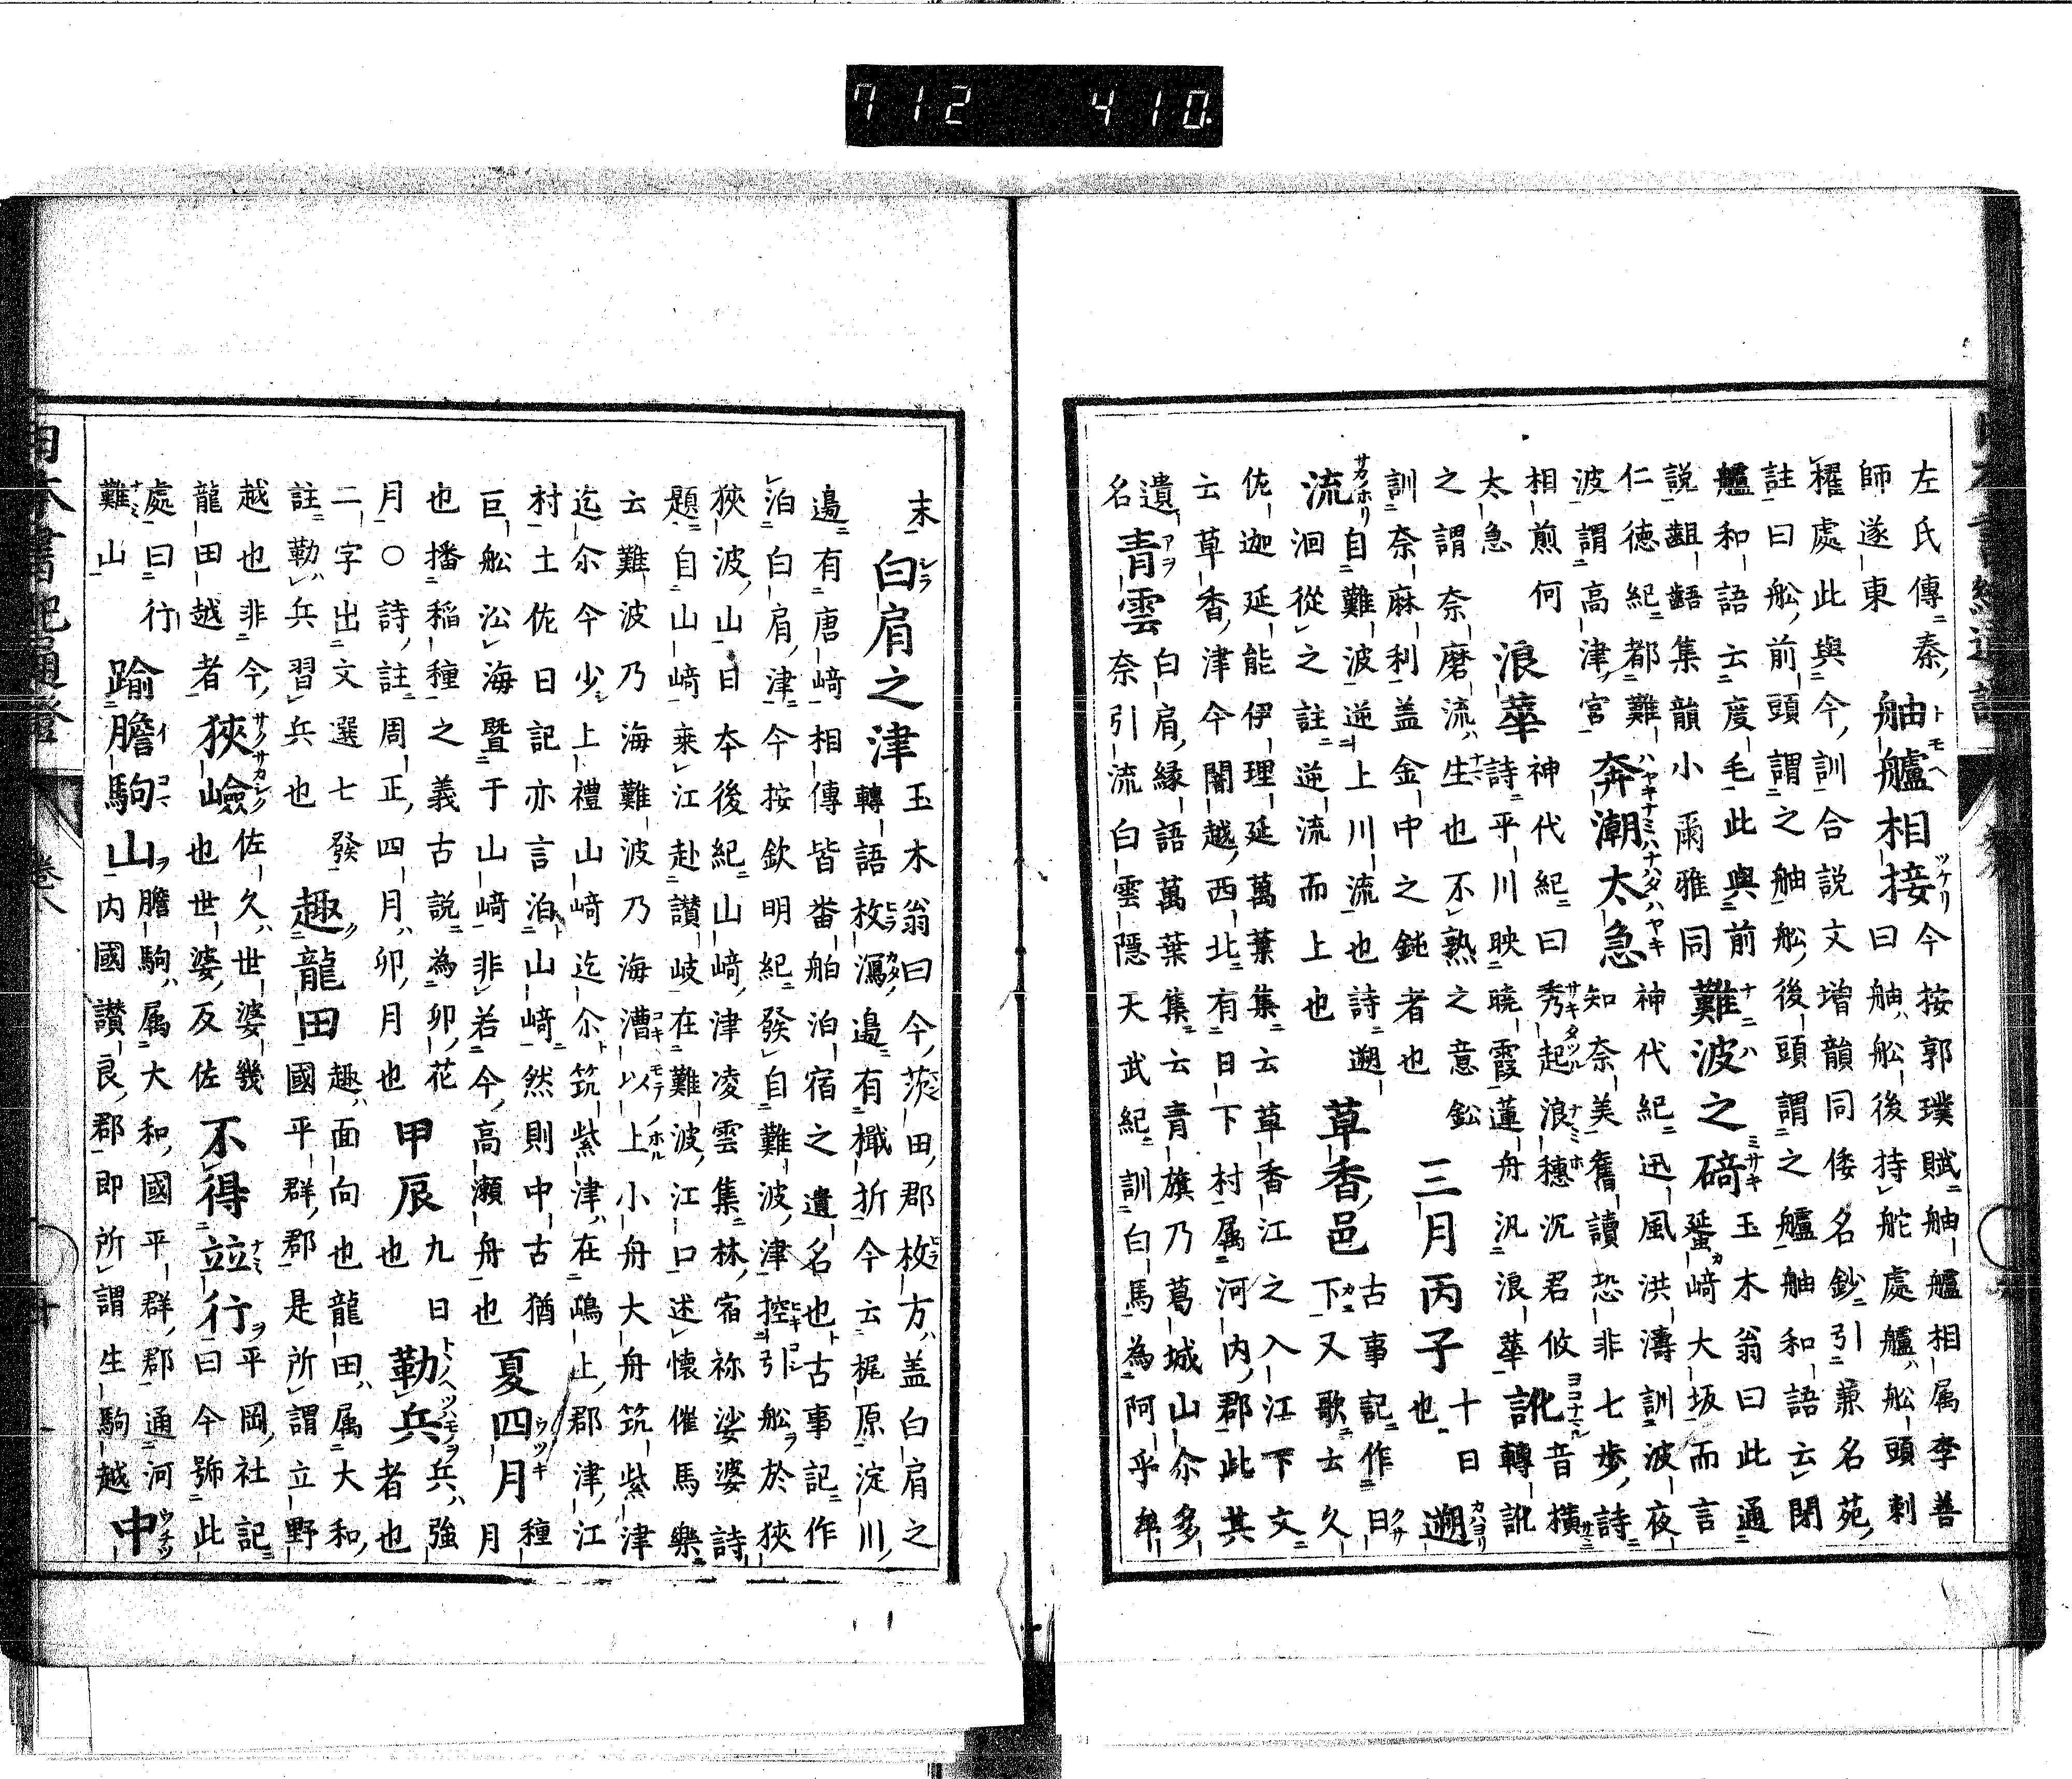 左氏傳秦
師遂東
舳艫相接
今按郭璞賦舳艫相属李善
曰舳舩後持舵處艫舩頭刺
櫂處此與今訓合説文増韻同倭名鈔引兼名苑
註曰舩前頭謂之舳舩後頭謂之艫舳和語云閉
艫和語云度毛此與前
説齟齬集韻小爾雅同
難波之碕
玉木翁曰此通
蜑崎大坂而言
仁徳紀都難
波謂高津宮
奔潮太急
神代紀迅風洪濤訓波夜
知奈美舊讀恐非七歩詩
相煎何
太急
浪華
神代紀曰秀起浪穗沉君攸
詩平川映曉霞蓮舟汎浪華
訛
音横
轉訛
之謂奈磨流生也不熟之意鈆
訓奈麻利盖金中之鈍者也
三月丙子
十日
也
遡
流
自難波逆上川流也詩遡
洄從之註逆流而上也
草香邑
古事記作日
下又歌云久
佐迦延能伊理延萬葉集云草香江之入江下文
云草香津今闇越西北有日下村属河内郡此其
遺
名
青雲
白肩縁語萬葉集云青旗乃葛城山尒多
奈引流白雲隱天武紀訓白馬為阿乎牟
末
白肩之津
玉木翁曰今茨田郡枚方盖白肩之
轉語枚瀉邉有檝折今云梶原淀川
邉有唐崎相傳皆畨舶泊宿之遺名也古事記作
泊白肩津今按欽明紀發自難波津控引舩於狹
狹波山日本後紀山崎津凌雲集林宿祢娑婆詩
題自山崎乗江赴讃岐在難波江口述懷催馬樂
云難波乃海難波乃海漕以上小舟大舟筑紫津
迄尒今少上禮山崎迄尒筑紫津在嶋上郡津江
村土佐日記亦言泊山崎然則中古猶
巨舩㳂海曁于山崎非若今高瀬舟也
夏四月
種
月
也播稲種之義古説為卯花
月〇詩註周正四月卯月也
甲辰
九日
也
勒兵
兵強
者也
二字出文選七發
註勒兵習兵也
趣龍田
趣面向也龍田属大和
國平群郡是所謂立野
越也非今
龍田越者
狹嶮
佐久世婆幾
也世婆反佐
不得竝行
平岡社記
曰今號此
處曰行
難山
踰膽駒山
膽駒属大和國平群郡通河
内國讃良郡即所謂生駒越
中